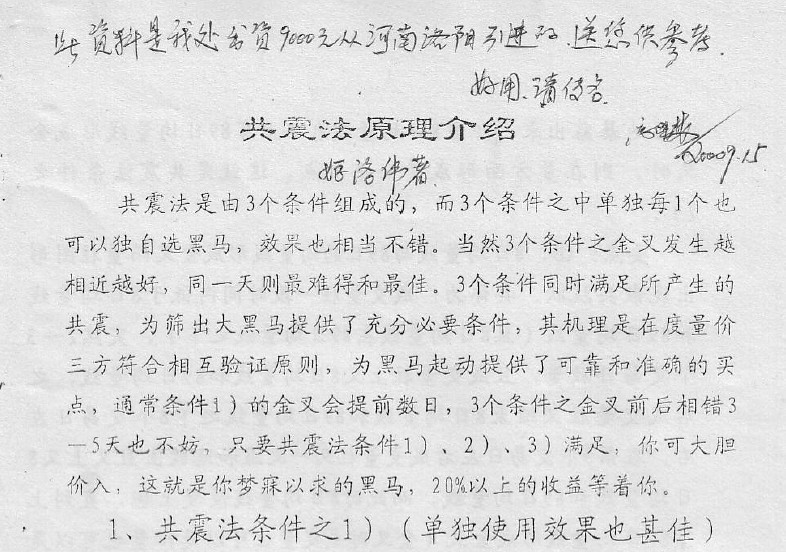 此资料是我处出资9000元从河南洛阳引进的.送您供参考.
好用.请传名.
共震法原理介绍
2000.9.15
姬洛伟著
共震法是由3个条件组成的，而3个条件之中单独每1个也
可以独自选黑马，效果也相当不错。当然3个条件之金叉发生越
相近越好，同一天则最难得和最佳。3个条件同时满足所产生的
共震，为筛出大黑马提供了充分必要条件，其机理是在度量价
三方符合相互验证原则，为黑马起动提供了可靠和准确的买
点，通常条件1）的金叉会提前数日，3个条件之金叉前后相错3
—5天也不妨，只要共震法条件1）、2）、3）满足，你可大胆
价入，这就是你梦寐以求的黑马，20%以上的收益等着你。
1、共震法条件之1）（单独使用效果也甚佳）